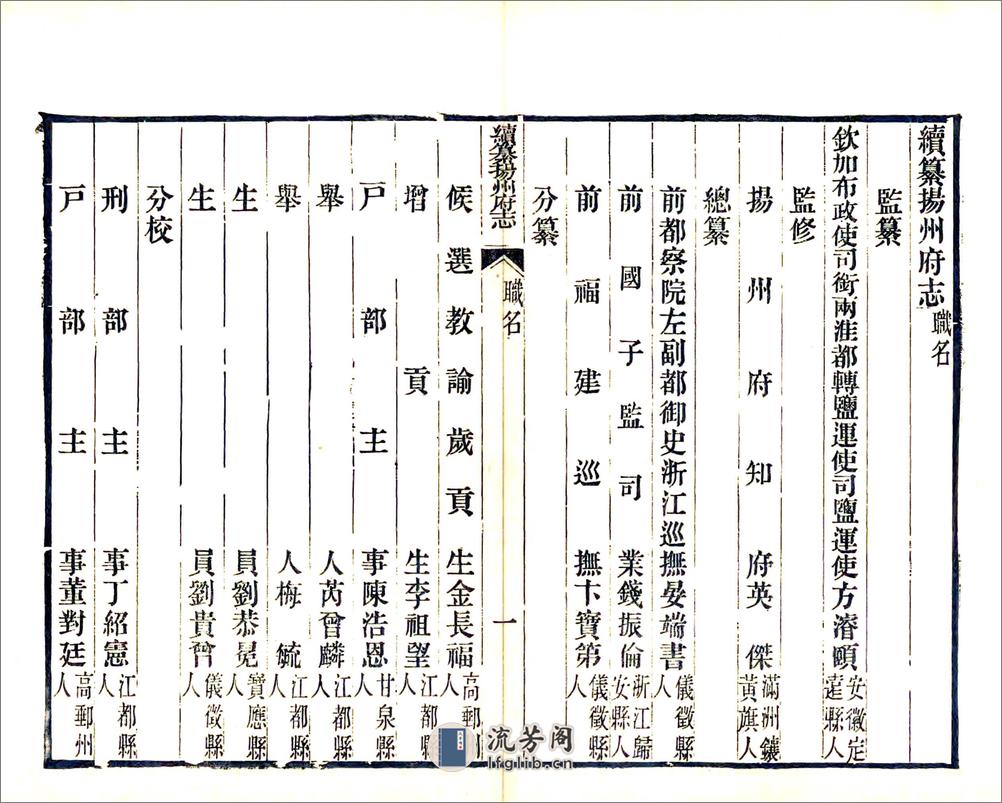 續纂揚州府志 職名
監纂
欽加布政使司銜兩淮都轉鹽運使司鹽運使方濬頤安徽定遠縣人
監修
揚州府知府英傑滿洲鑲黃旗人
總纂
前都察院左副都御史浙江巡撫晏端書儀徵縣人
前國子監司業錢振倫浙江歸安縣人
前福建巡撫卞寶第儀徵縣人
分纂
續纂揚州府志 職名 一
候選教諭歲貢生金長福高郵州人
增貢生李祖望江都縣人
戶部主事陳浩恩甘泉縣人
舉人芮曾麟江都縣人
舉人梅毓江都縣人
生員劉恭冕寶應縣人
生員劉貴曾儀徵縣人
分校
刑部主事丁紹憲江都縣人
戶部主事董對廷高郵州人
流芳阁
lfglib.cn